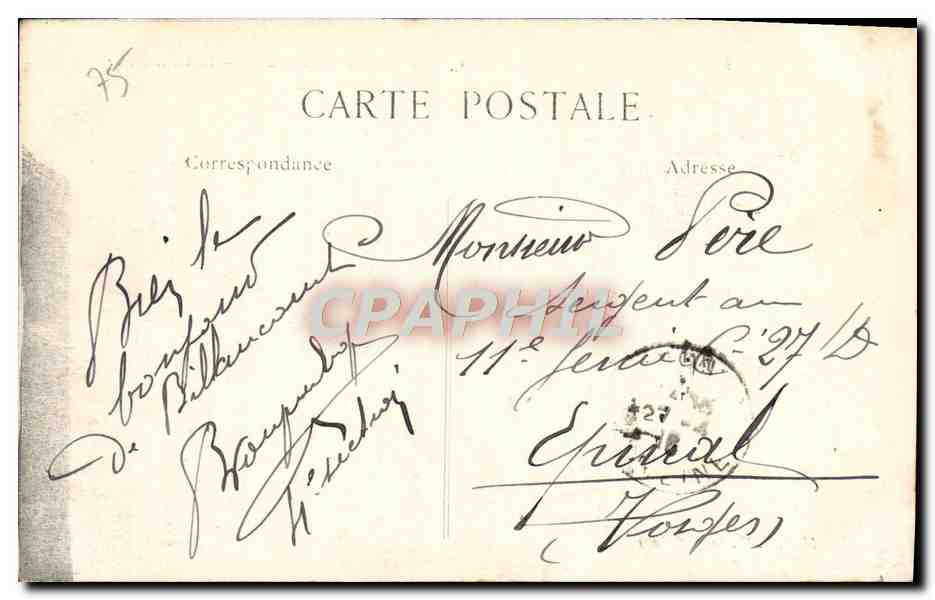 75
CARTE POSTALE
Correspondance
Adresse
Bien le
bonjour
de Billancourt
Monsieur Père
Sergent au
11e Génie Cie 27/D
Epinal
(Vosges)
27
CPAPHIL